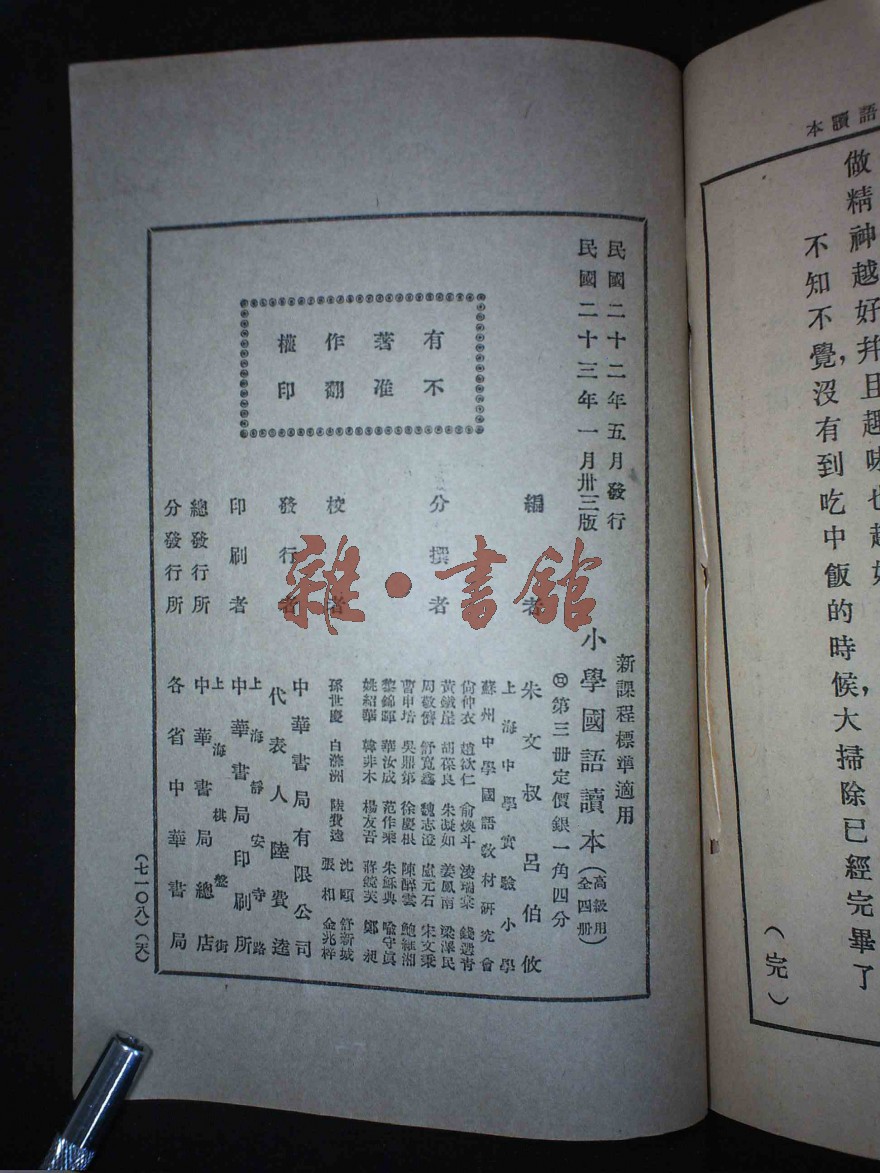 語讀本
做精神越好，并且趣味也越好
不知不覺，沒有到吃中飯的時候，大掃除已經完畢了
（完）
民國二十二年五月發行
民國二十三年一月卅三版
新課程標準適用
小學國語讀本（高級用全四册）
第三册定價銀一角四分
有著作權
不准翻印
編者
朱文叔 呂伯攸
分撰者
上海中學實驗小學
蘇州中學國語教材研究會
尙仲衣 趙欲仁 俞煥斗 淩瑞棻 錢選青
黃鐵崖 胡葆良 朱凝如 姜鳳南 梁澤民
周敬齋 舒寬鑫 魏志澄 盧元石 宋文秉
曹申培 吳鼎第 徐慶根 陳醉雲 鮑維湘
黎錦暉 華汝成 范作乘 朱穌典 喻守眞
姚紹華 韓非木 楊友吾 蔣鏡芙 鄭昶
校者
孫世慶 白滌洲 陸費逵 沈頤 舒新城
張相 金兆梓
發行者
中華書局有限公司
代表人 陸費逵
印刷者
上海靜安寺路
中華書局印刷所
總發行所
上海棋盤街
中華書局總店
分發行所
各省中華書局
（七一〇八）（天）
雜·書館